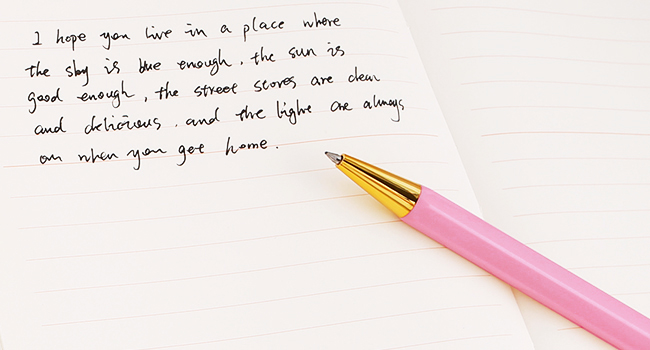 I hope you live in a place where
the sky is blue enough, the sun is
good enough, the street stores are clean
and delicious, and the light are always
on when you get home.